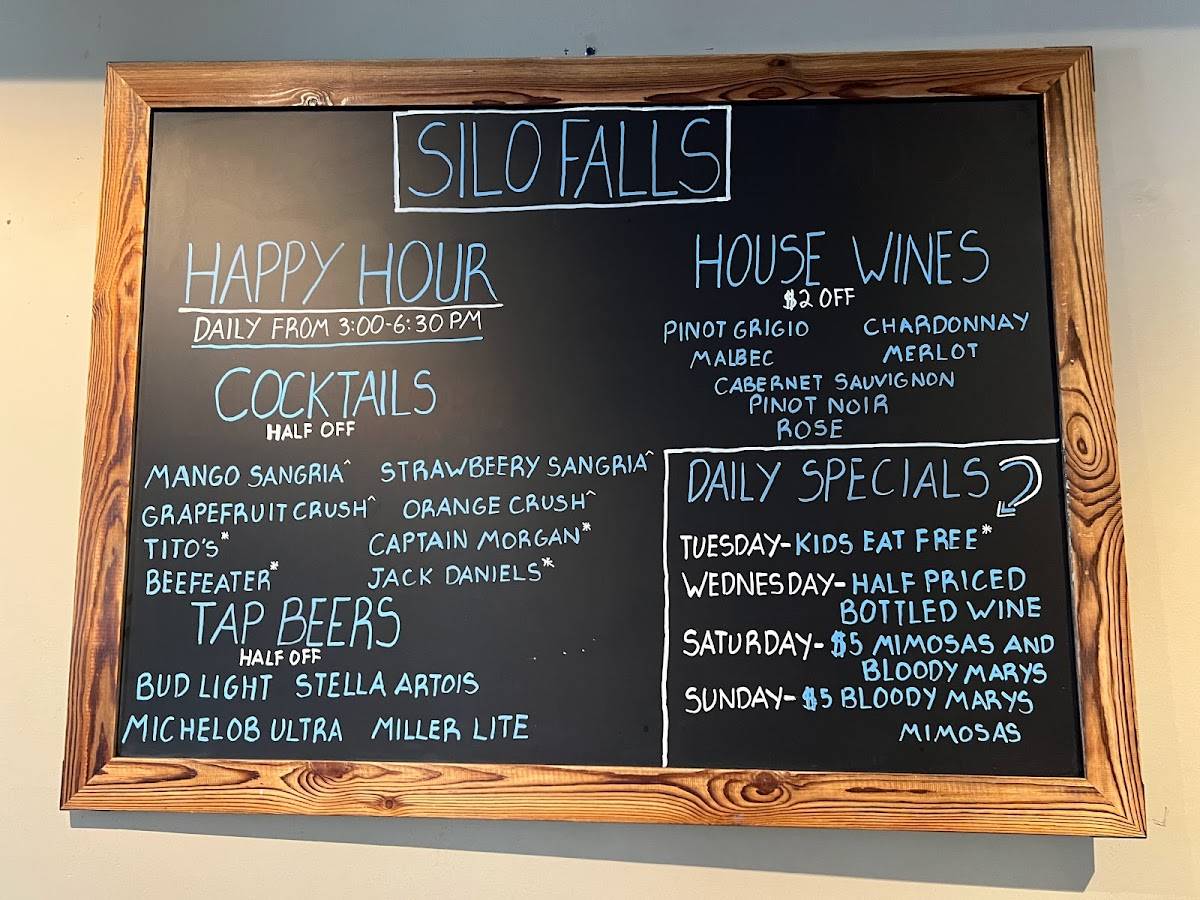 SILO FALLS
HAPPY HOUR
DAILY FROM 3:00-6:30 PM
COCKTAILS
HALF OFF
MANGO SANGRIA^ STRAWBEERY SANGRIA^
GRAPEFRUIT CRUSH^ ORANGE CRUSH^
TITO'S* CAPTAIN MORGAN*
BEEFEATER* JACK DANIELS*
TAP BEERS
HALF OFF
BUD LIGHT STELLA ARTOIS
MICHELOB ULTRA MILLER LITE
HOUSE WINES
$2 OFF
PINOT GRIGIO CHARDONNAY
MALBEC MERLOT
CABERNET SAUVIGNON
PINOT NOIR
ROSE
DAILY SPECIALS
TUESDAY-KIDS EAT FREE*
WEDNESDAY-HALF PRICED
BOTTLED WINE
SATURDAY-$5 MIMOSAS AND
BLOODY MARYS
SUNDAY-$5 BLOODY MARYS
MIMOSAS